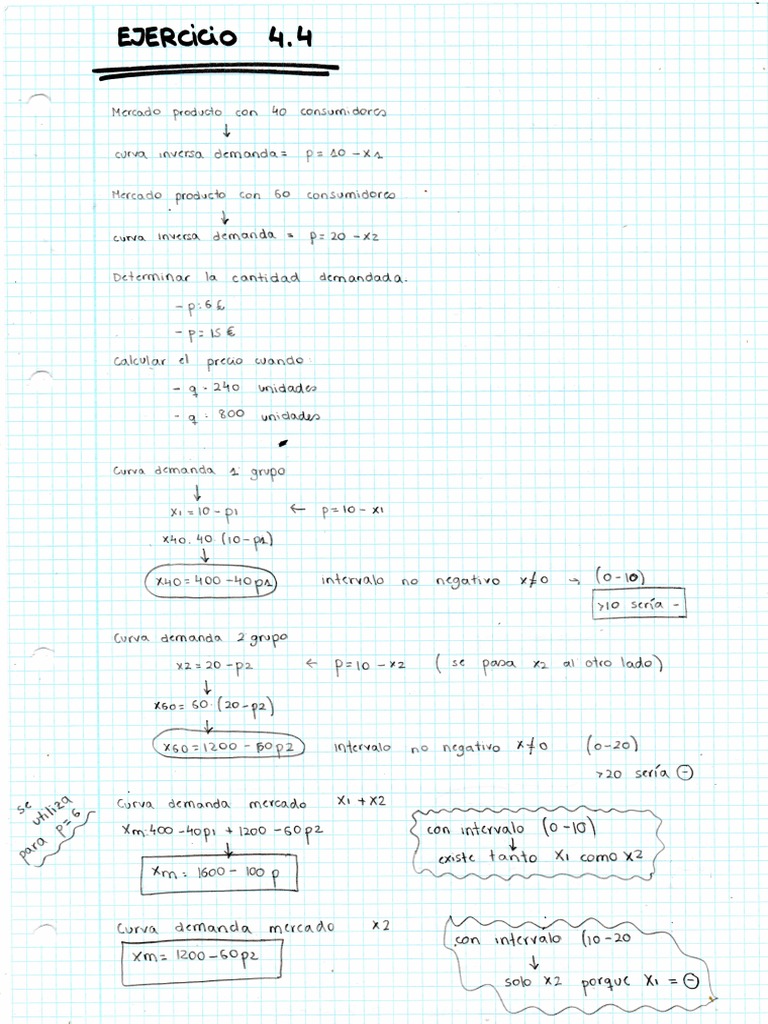 EJERCICIO 4.4
Mercado producto con 40 consumidores
↓
curva inversa demanda = p = 10 - x1
Mercado producto con 60 consumidores
↓
curva inversa demanda = p = 20 - x2
Determinar la cantidad demandada.
- p: 6 €
- p = 15 €
Calcular el precio cuando:
- q = 240 unidades
- q = 800 unidades
Curva demanda 1 grupo
↓
x1 = 10 - p1 ← p = 10 - x1
x40 = 40 (10 - p1)
↓
x40 = 400 - 40p1 intervalo no negativo x≠0 → (0-10)
>10 sería -
Curva demanda 2 grupo
x2 = 20 - p2 ← p = 10 - x2 (se pasa x2 al otro lado)
↓
x60 = 60·(20-p2)
↓
x60 = 1200 - 60p2 intervalo no negativo x≠0 (0-20)
>20 sería ⊖
se utiliza para p=6
Curva demanda mercado x1 + x2
xm = 400 - 40p1 + 1200 - 60p2
↓
xm = 1600 - 100 p
con intervalo (0-10)
↓
existe tanto x1 como x2
Curva demanda mercado x2
xm = 1200 - 60p2
con intervalo (10-20
↓
solo x2 porque x1 = ⊖